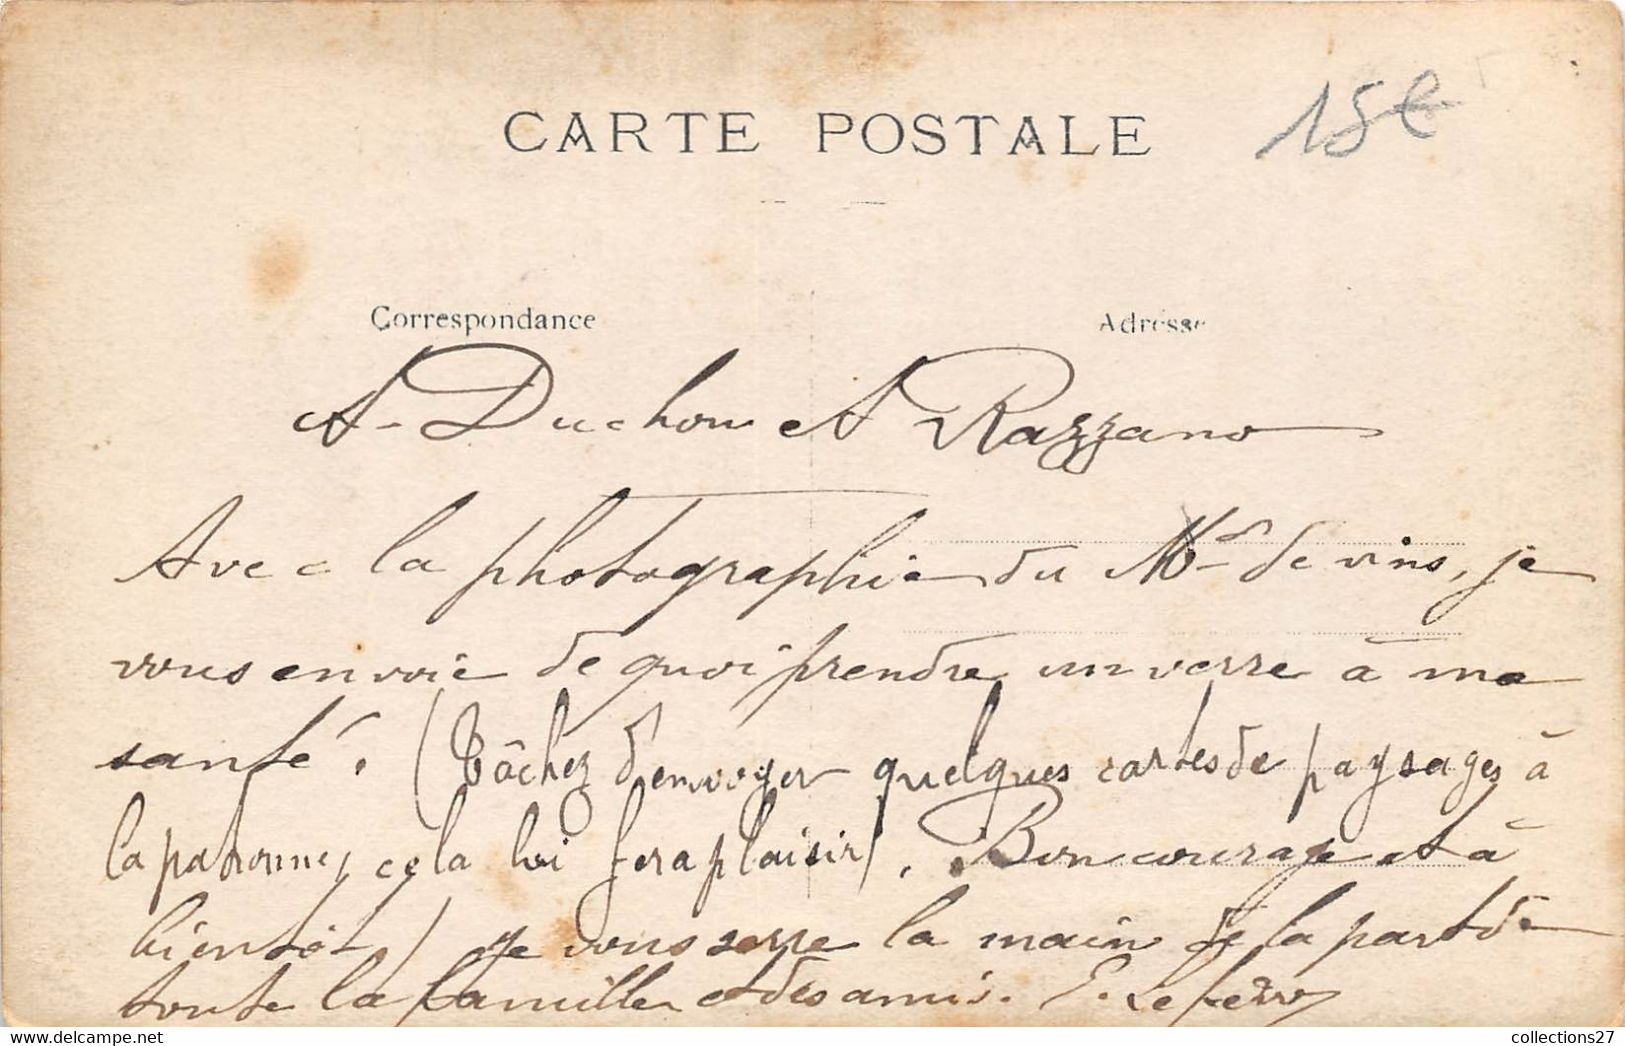 CARTE POSTALE
15€
Correspondance
Adresse
A. Duchon et A Razzano
Avec la photographie du Md de vins, je
vous envoie de quoi prendre un verre à ma
santé. (Tâchez d'envoyer quelques cartes de paysages à
la patronne, cela lui fera plaisir). Bon courage et à
bientôt, je vous serre la main de la part de
toute la famille et des amis. E.
collections27